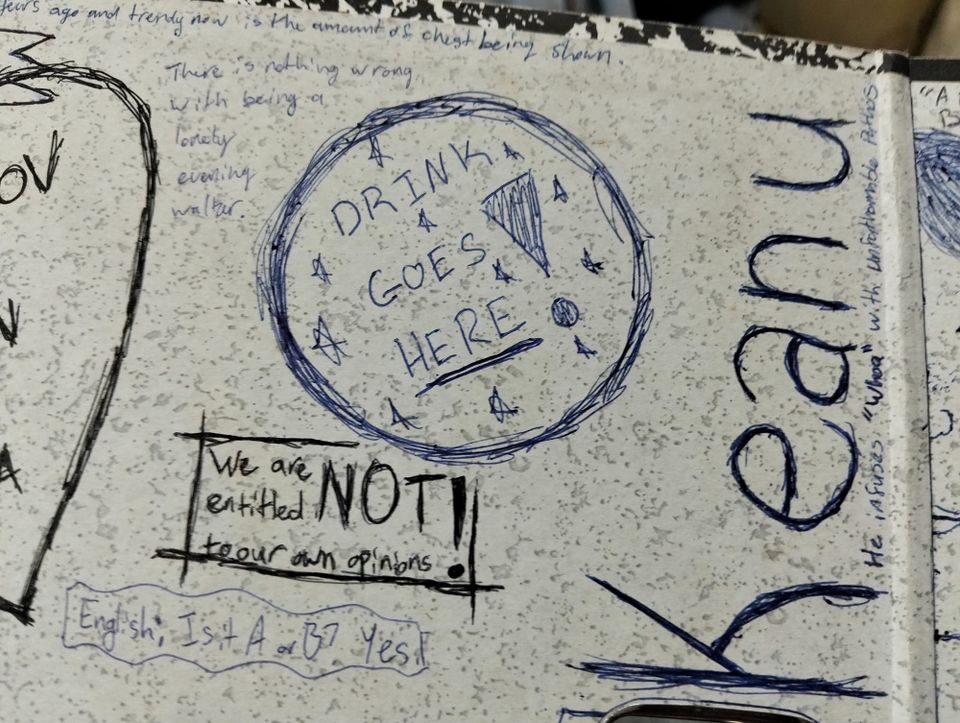 years ago and trendy now is the amount of chest being shown.
There is nothing wrong
with being a
lonely
evening
walker.
DRINK
GOES
HERE!
We are
entitled NOT!
to our own opinions.
English: Is it A or B? Yes!
Keanu
He infuses "Whoa" with Unfathomable Pathos
OV
V
A
"A
B